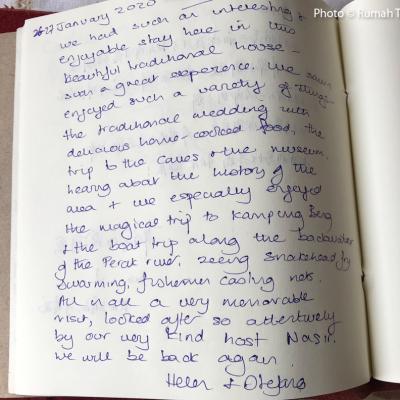 Photo © Rumah T
26-27 January 2020
we had such an interesting &
enjoyable stay here in this
beautiful traditional house -
such a great experience. We
enjoyed such a variety of things
the traditional wedding with
delicious home cooked food, the
trip to the caves & the museum.
hearing about the history of the
area & we especially enjoyed
the magical trip to Kampung Beng
& the boat trip along the backwater
of the Perak river, seeing snakehead fry
swarming, fishermen casting nets.
All in all a very memorable
visit, looked after so attentively
by our very kind host Nasir.
We will be back again.
Helen &